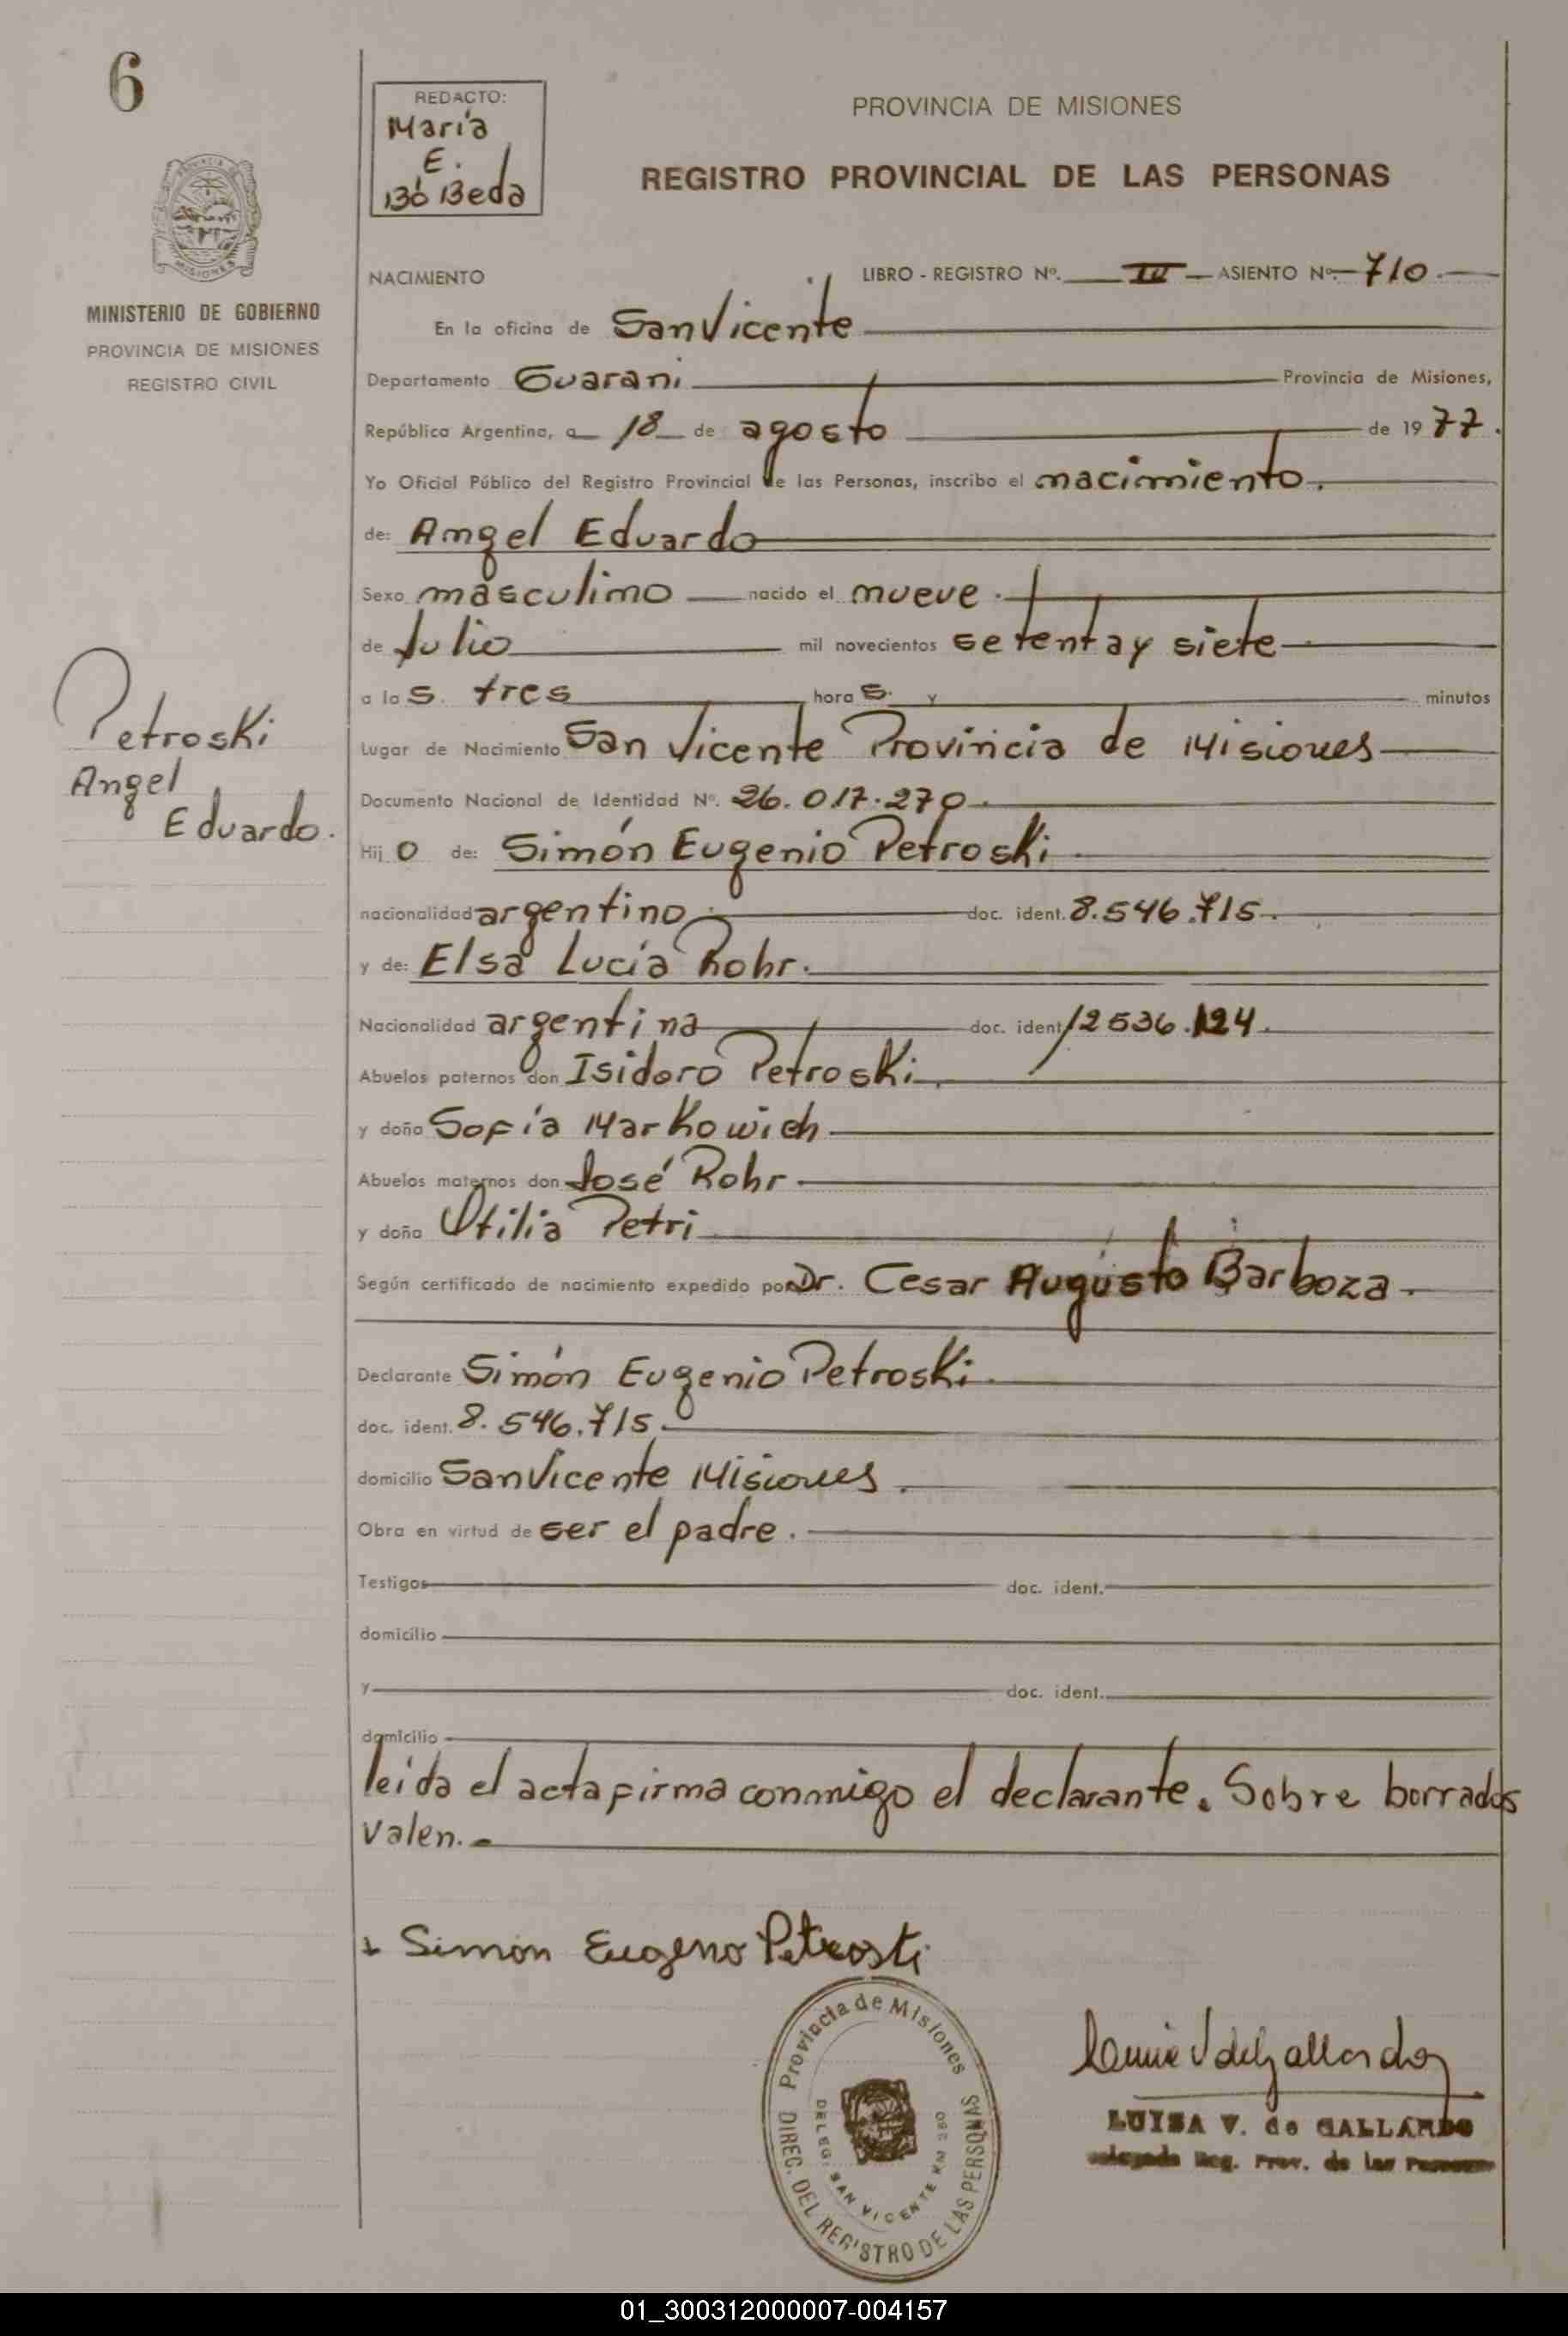 6
REDACTO:
María
E.
Bó Beda
PROVINCIA DE MISIONES
REGISTRO PROVINCIAL DE LAS PERSONAS
MISIONES
MINISTERIO DE GOBIERNO
PROVINCIA DE MISIONES
REGISTRO CIVIL
NACIMIENTO LIBRO - REGISTRO Nº. III ASIENTO Nº. 710.
En la oficina de San Vicente
Departamento Guarani Provincia de Misiones,
República Argentina, a 18 de agosto de 1977.
Yo Oficial Público del Registro Provincial de las Personas, inscribo el nacimiento.
de: Angel Eduardo
Sexo masculino nacido el nueve.
de Julio mil novecientos setenta y siete
a las. tres horas. y minutos
Lugar de Nacimiento San Vicente Provincia de Misiones
Documento Nacional de Identidad Nº. 26.017.270.
Petroski
Angel
Eduardo.
Hijo de: Simón Eugenio Petroski.
nacionalidad argentino. doc. ident. 8.546.715.
y de: Elsa Lucía Rohr.
Nacionalidad argentina doc. ident. 12536.124.
Abuelos paternos don Isidoro Petroski.
y doña Sofía Markowich
Abuelos maternos don José Rohr.
y doña Otilia Petri
Según certificado de nacimiento expedido por Dr. Cesar Augusto Barboza.
Declarante Simón Eugenio Petroski.
doc. ident. 8.546.715.
domicilio San Vicente Misiones.
Obra en virtud de ser el padre.
Testigos doc. ident.
domicilio
y doc. ident.
domicilio
leída el acta firma conmigo el declarante. Sobre borrados
valen.
Simón Eugenio Petroski
Provincia de Misiones
DIREC. DEL REGISTRO DE LAS PERSONAS
DELEG. SAN VICENTE KM 280
LUISA V. de GALLARDO
Delegada Reg. Prov. de las Personas
01_300312000007-004157